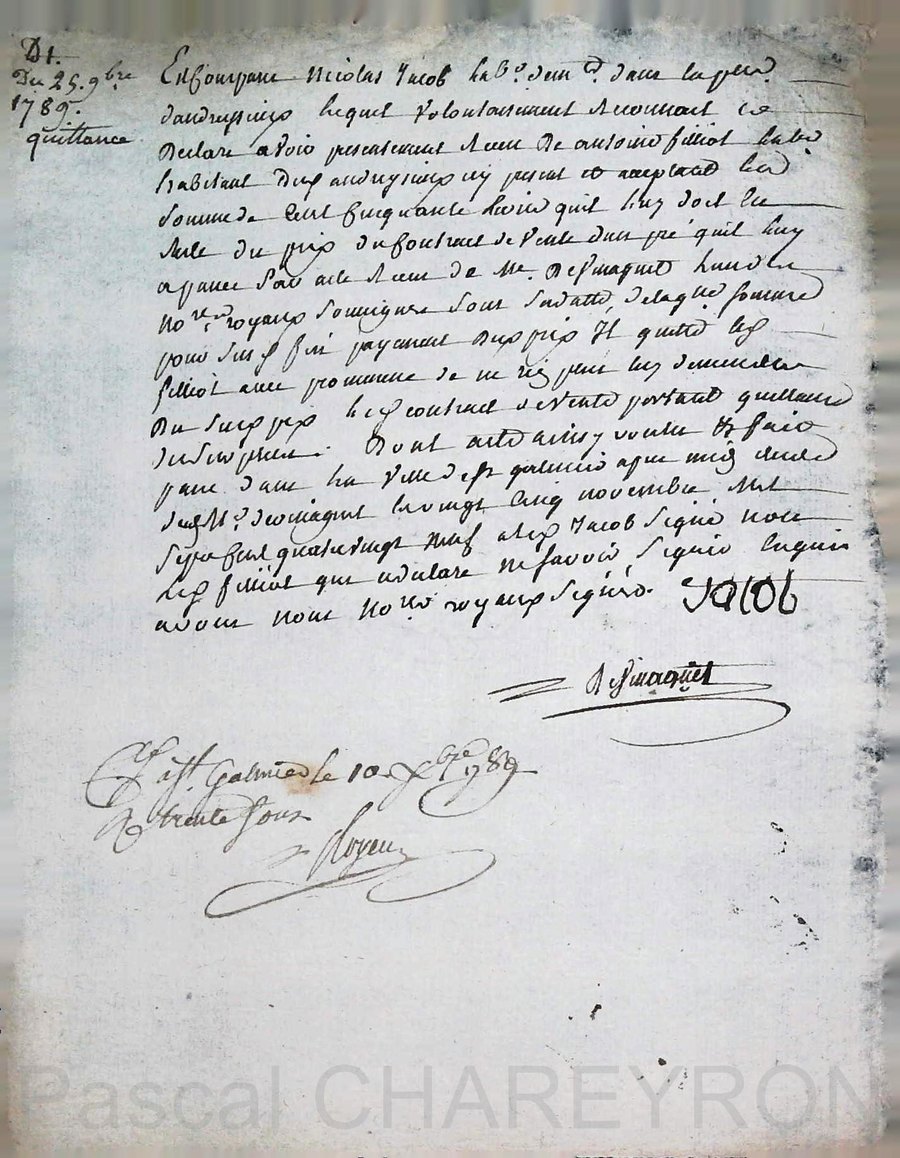 D1.
Du 25. 9bre
1789.
quittance
Est Comparu Nicolas Jacob dans la
d'andrezieux lequel volontairement reconnait et
Declare avoir presentement Receu De antoine filliot
habitant andrezieux present et acceptant la
Somme de Cent Cinquante livres quil luy doit
Reste du prix du Contract de Vente d'un pré quil luy
a passé par acte Receu de Me. Desmagnet
No.re royaux Soussigné Sous Sa datte, delaquelle Somme
pour payement Dud prix Il quitte led
filliot avec promesse de ne luy demander
Du Susd prix led contract de Vente portant quittance
Dont acte ainsy voulu & fait
passé dans la Ville de St galmier apres midy
Me. Desmagnet le vingt Cinq novembre Mil
Sept Cent quatre vingt neuf a led Jacob Signé non
led filliot qui a declaré ne Savoir Signer Enquis
avons nous No.re royaux Signéé. Jacob
Desmagnet
Clé a St. Galmier le 10 Xbre 1789
R trente Sous
Royeu
Pascal CHAREYRON